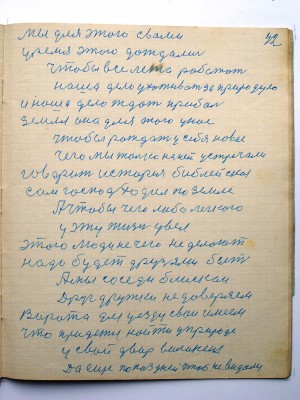 42
мы для этого свами
время этого дождали
чтобы все лета работат
наша дело ухоживат за природую
и наша дело ждат прибал
земля она для этого
чтобы рождат у себя новое
чего мы только на ней устречали
говорит история библейская
сам господ ходил по земле
А чтобы чего либо легкого
у эту жизн увел
этого люди нечего не делают
надо будет друзями быт
А мы соседи блискаи
Друг дружки не доверяем
Варота для уезду сваи имеем
что придется найти у природе
у свой двар
Да еще попаздней чтоб не видали